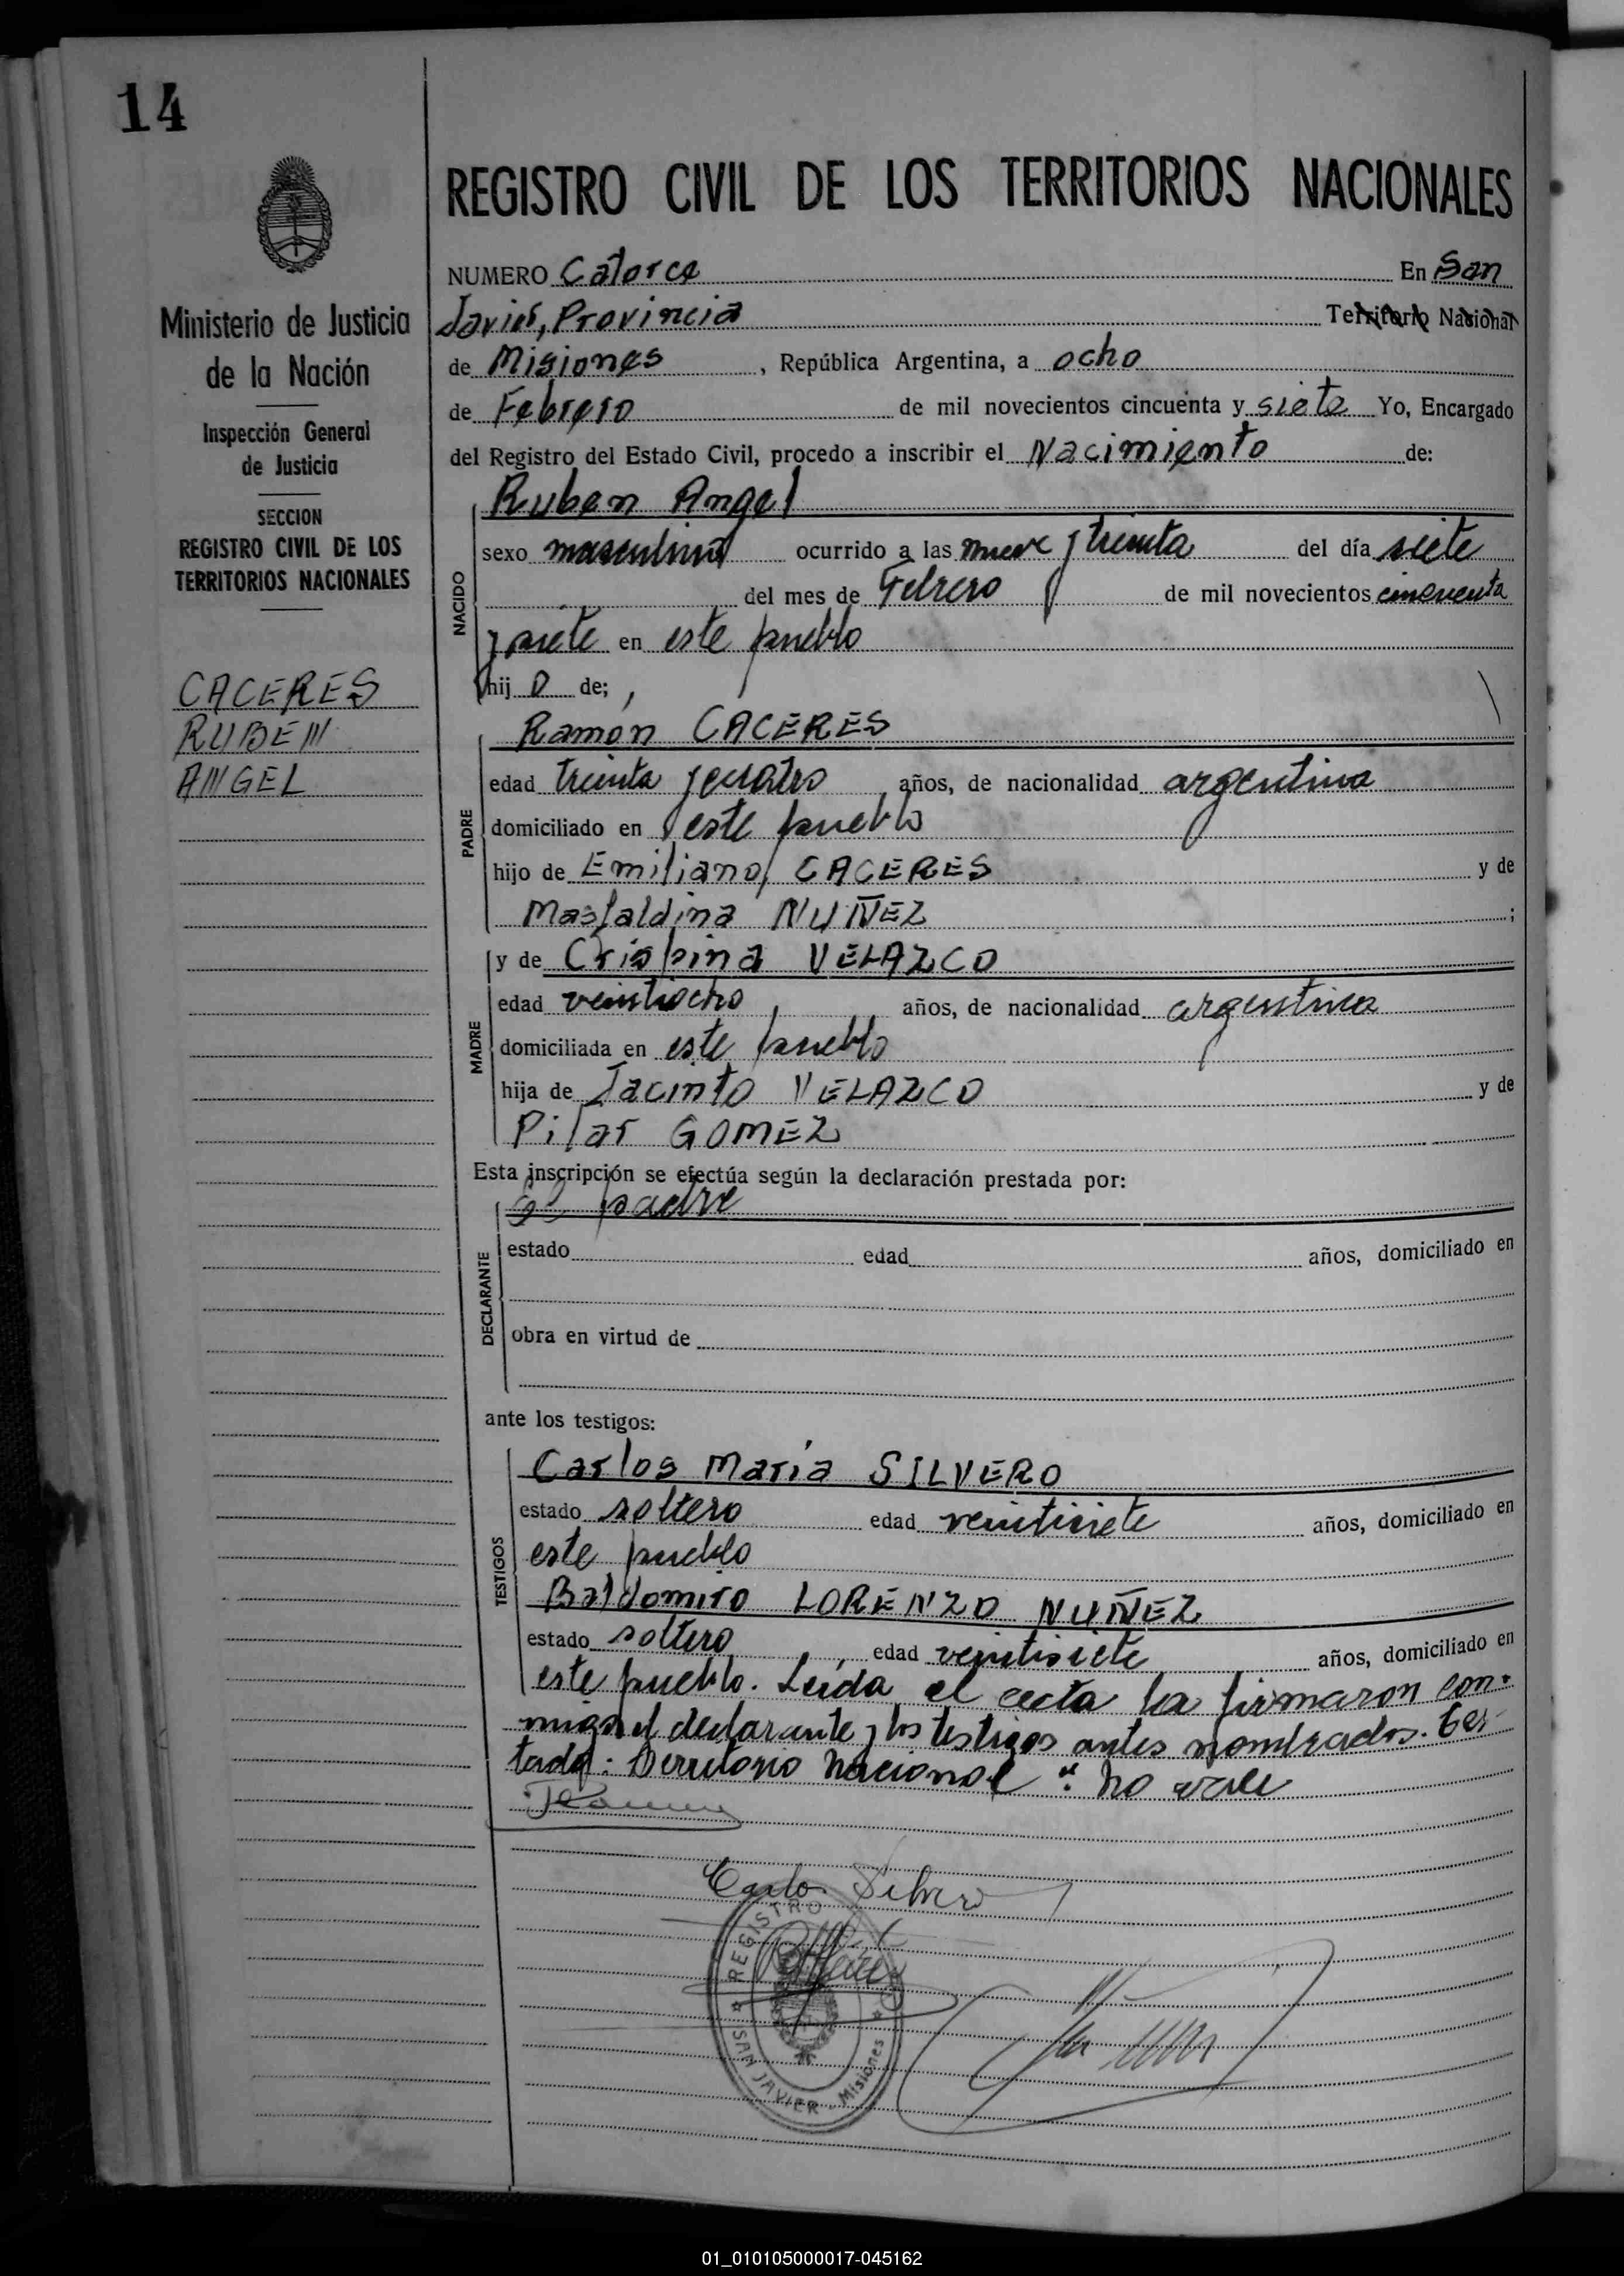 14
REGISTRO CIVIL DE LOS TERRITORIOS NACIONALES
Ministerio de Justicia
de la Nación
Inspección General
de Justicia
SECCION
REGISTRO CIVIL DE LOS
TERRITORIOS NACIONALES
CACERES
RUBEN
ANGEL
NUMERO Catorce En San
Javier, Provincia Territorio Nacional
de Misiones, República Argentina, a ocho
de Febrero de mil novecientos cincuenta y siete Yo, Encargado
del Registro del Estado Civil, procedo a inscribir el Nacimiento de:
NACIDO
Ruben Angel
sexo masculino ocurrido a las nueve y treinta del día siete
del mes de Febrero de mil novecientos cincuenta
y siete en este pueblo
hij o de;
PADRE
Ramón CACERES
edad treinta y cuatro años, de nacionalidad argentina
domiciliado en este pueblo
hijo de Emiliano CACERES y de
Masfaldina NUÑEZ ;
MADRE
y de Crispina VELAZCO
edad veintiocho años, de nacionalidad argentina
domiciliada en este pueblo
hija de Jacinto VELAZCO y de
Pilar GOMEZ
Esta inscripción se efectúa según la declaración prestada por:
DECLARANTE
el padre
estado edad años, domiciliado en
obra en virtud de
ante los testigos:
TESTIGOS
Carlos María SILVERO
estado soltero edad veintisiete años, domiciliado en
este pueblo
Baldomiro LORENZO NUÑEZ
estado soltero, edad veintisiete años, domiciliado en
este pueblo. Leída el acta la firmaron con-
migo el declarante y los testigos antes nombrados. Tes-
tado: Territorio Nacional": no vale
Carlos Silvero
REGISTRO
SAN JAVIER - Misiones
01_010105000017-045162